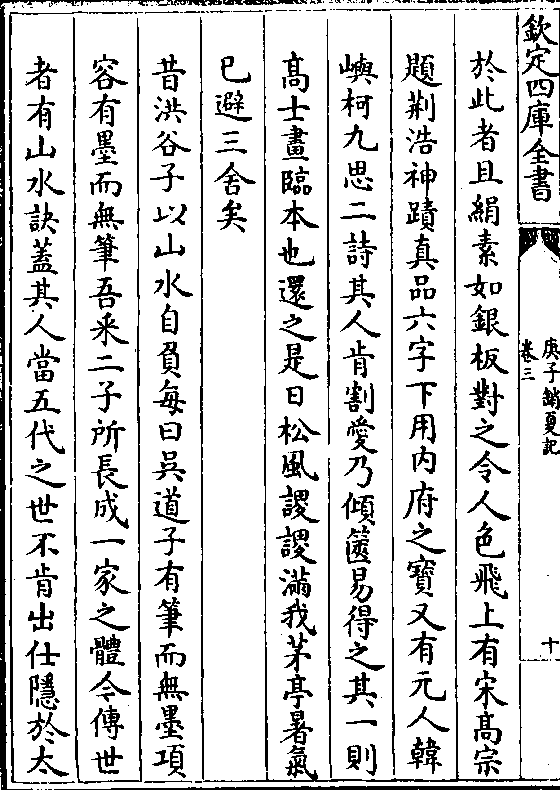 欽定四庫全書
庚子銷夏記
卷三
十
於此者且絹素如銀板對之令人色飛上有宋髙宗
題荆浩神蹟真品六字下用内府之寳又有元人韓
嶼柯九思二詩其人肯割愛乃傾篋易得之其一則
髙士畫臨本也還之是日松風謖謖滿我茅亭暑氣
已避三舍矣
昔洪谷子以山水自負每曰吳道子有筆而無墨項
容有墨而無筆吾采二子所長成一家之體今傳世
者有山水訣蓋其人當五代之世不肯出仕隱於太